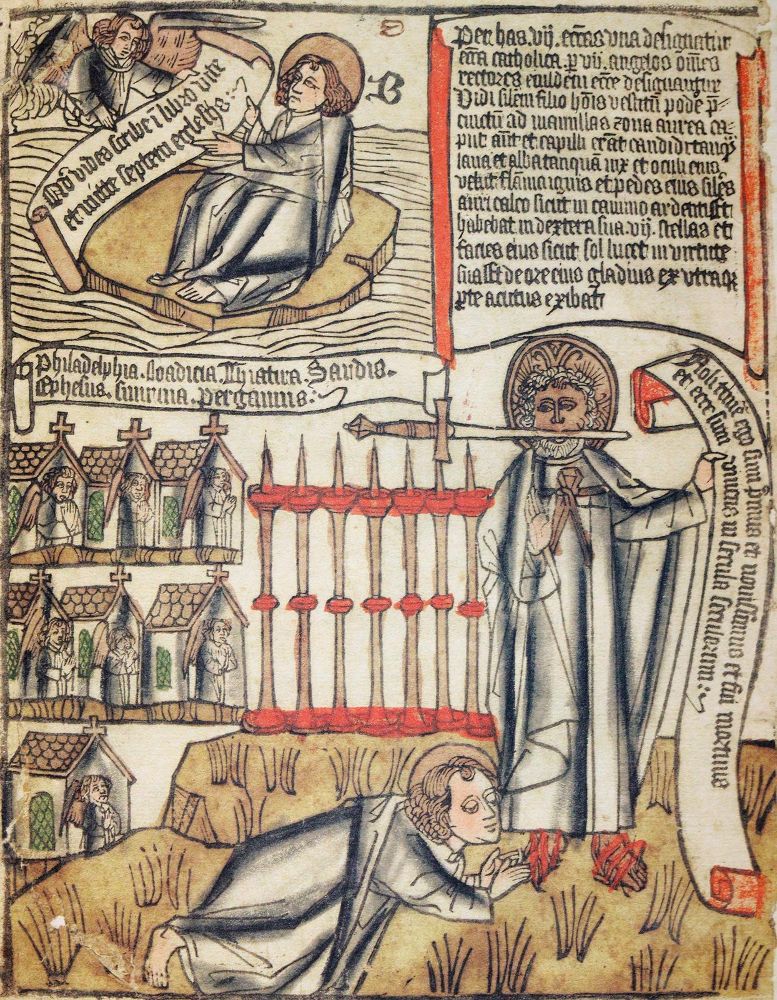 Qd vides scribe i libro vite
et mitte septem ecclesiis :
B
Per has .vij. eccias vna designatur
eccia catholica p vij. angelos omes
rectores eiusdem eccie designantur
Vidi silem filio hois vestitu pode p
cinctum ad mamillas zona aurea ca
put aut et capilli erant candidi tanq
lana et alba tanqua nix et oculi eius
velut flama ignis et pedes eius siles
auricalco sicut in camino ardenti et
habebat in dextera sua .vij. stellas et
facies eius sicut sol lucet in virtute
sua et de ore eius gladius ex vtraq
pte acutus exibat
Philadelphia . Loadicia . Thiatira . Sardis .
Ephesus . smirma . pergamus :
Noli time ego sum primus et nouissimus et fui mortuus
et ecce sum viuens in secula seculorum :